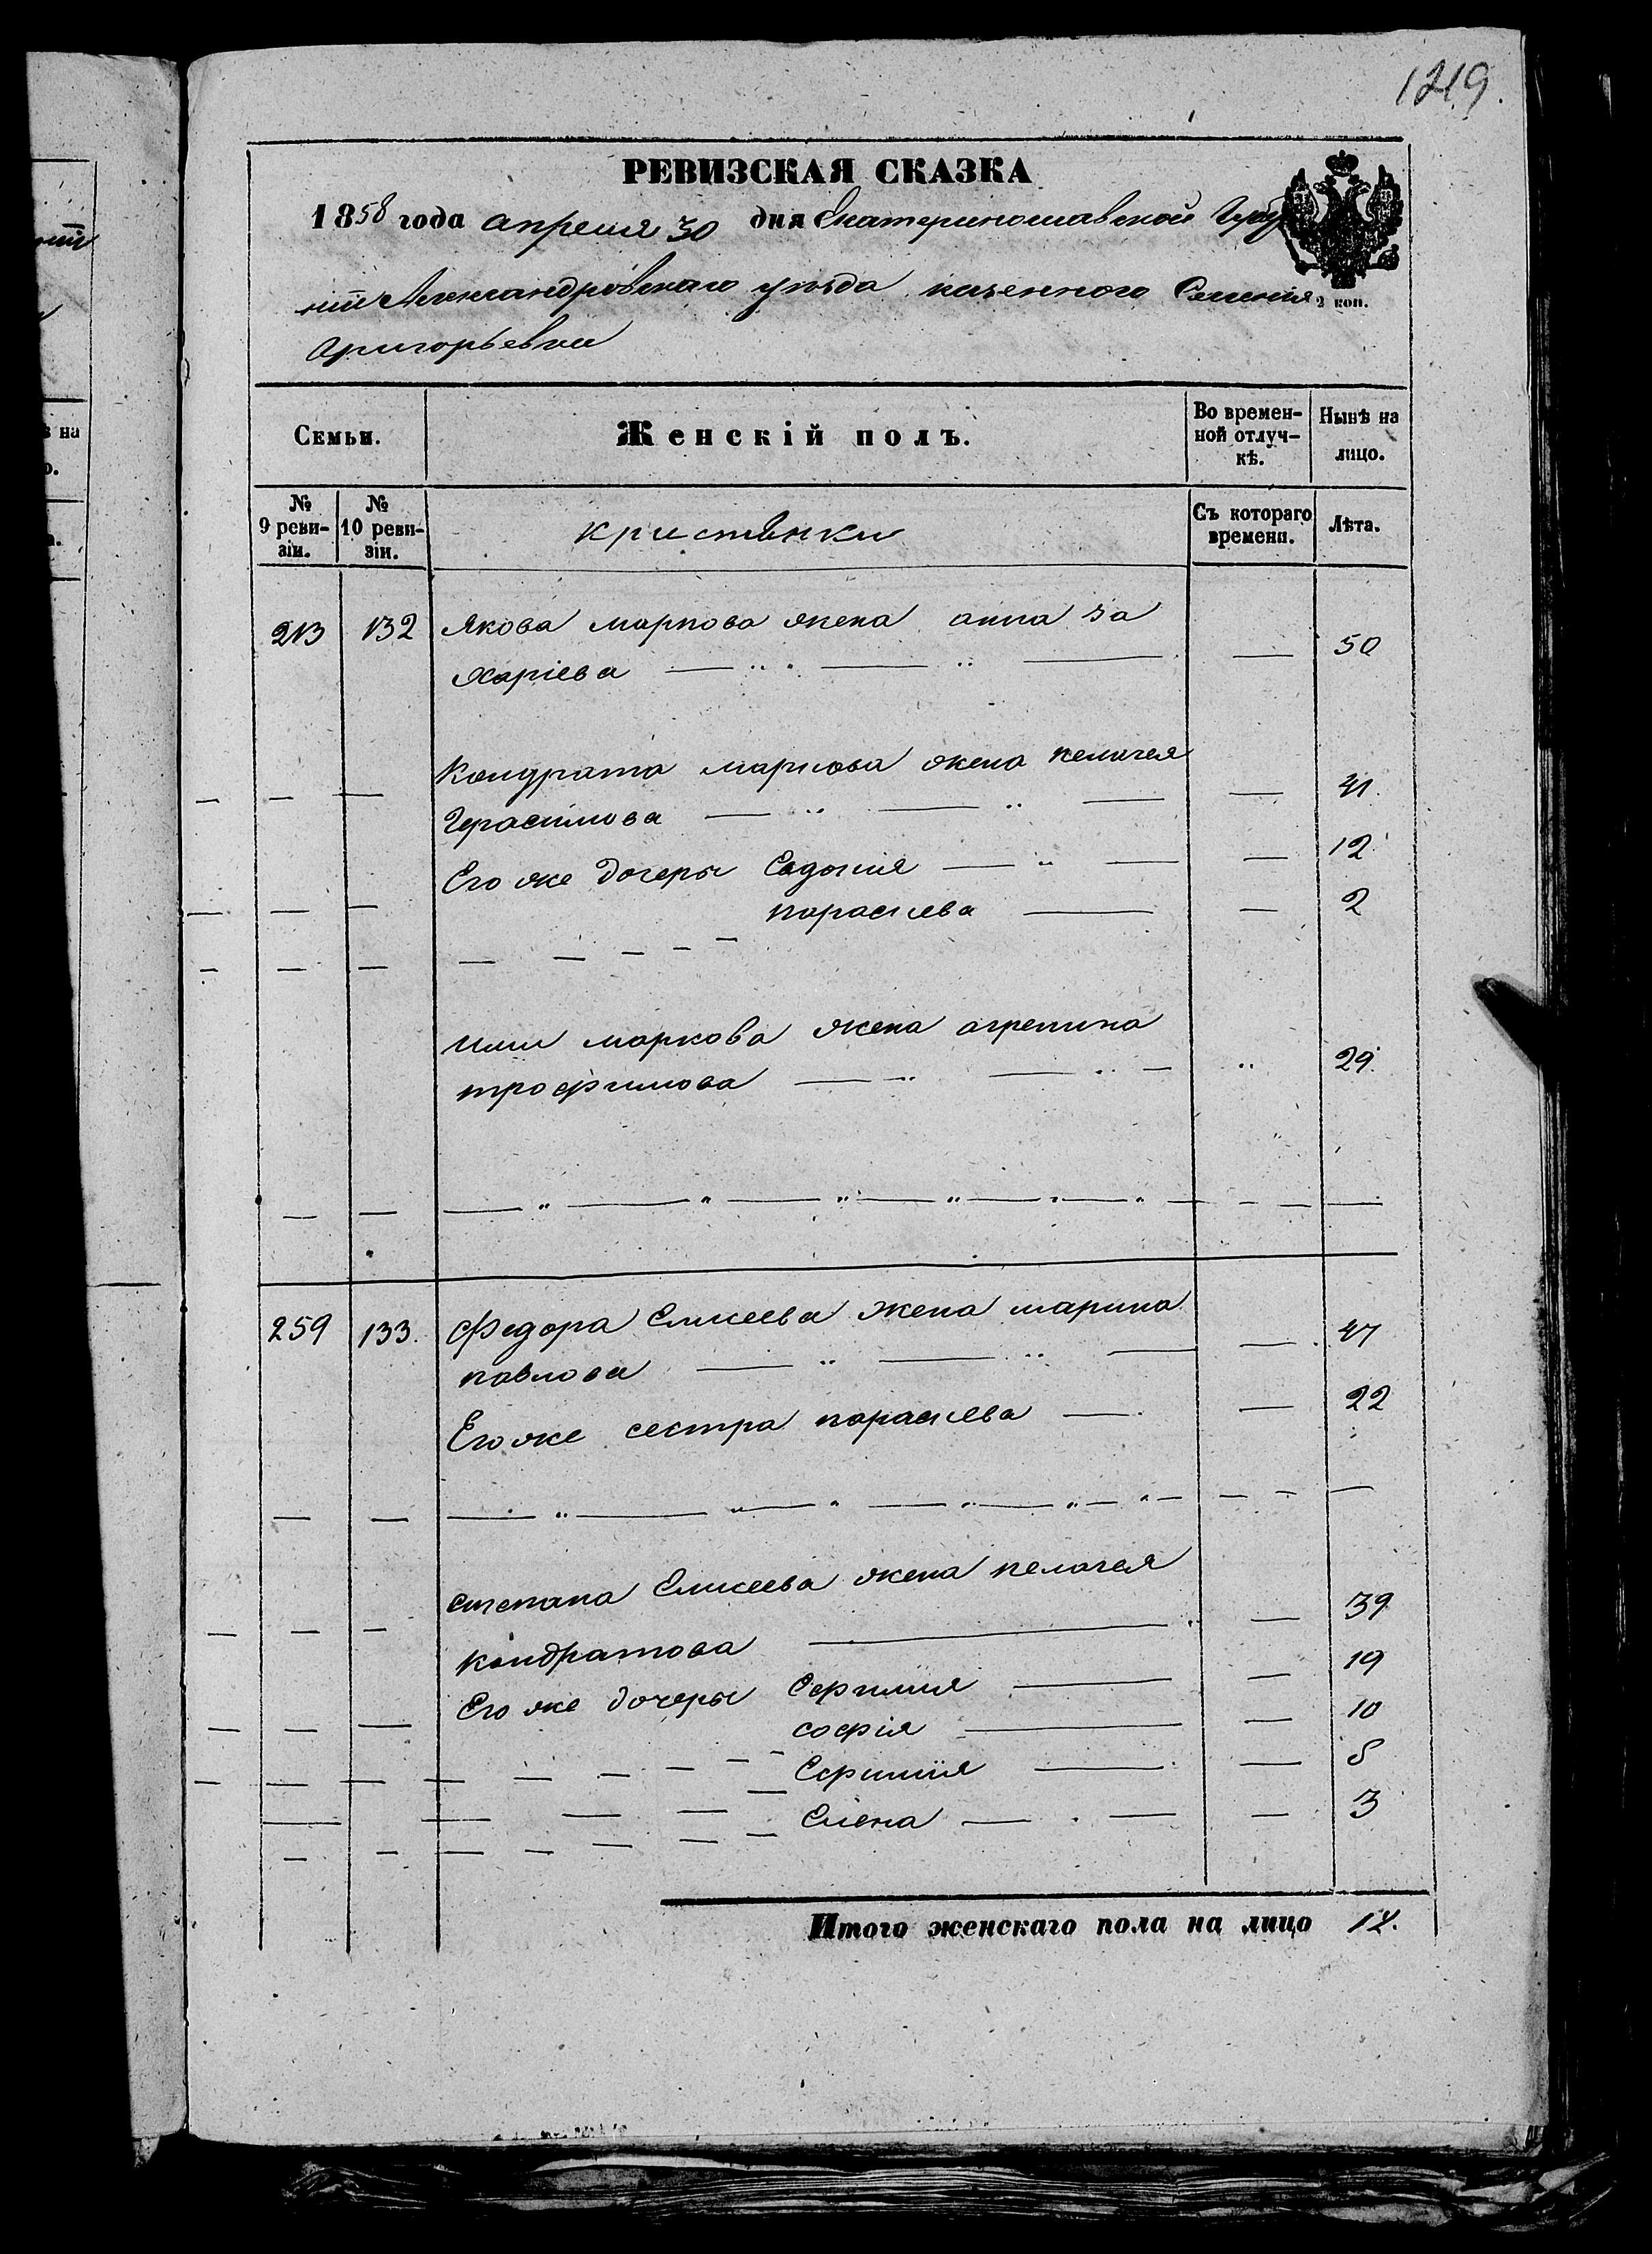 1219.
РЕВИЗСКАЯ СКАЗКА
1858 года апреля 30 дня Екатеринославской Губер
нии Александровскаго уѣзда казенного Селения
Григорьевки
2 коп.
Семьи.
Женскій полъ.
Во времен-
ной отлуч-
кѣ.
Нынѣ на
лицо.
№
9 реви-
зіи.
№
10 реви-
зіи.
Съ котораго
времени.
Лѣта.
213 132 Якова маркова жена анна за
харіева 50
Кондрата маркова жена пелагея
Герасимова 41.
Его же дочеры Евдокия 12
параскева 2
маркова жена агрепина
трофимова 29.
259 133. Федора Елисеева жена марина
павлова 47
Его же сестра параскева 22
степана Елисеева жена пелагея
кондратова 39
Его же дочеры 19
софія 10
Ефимия
Елена 3
Итого женскаго пола на лицо 12.